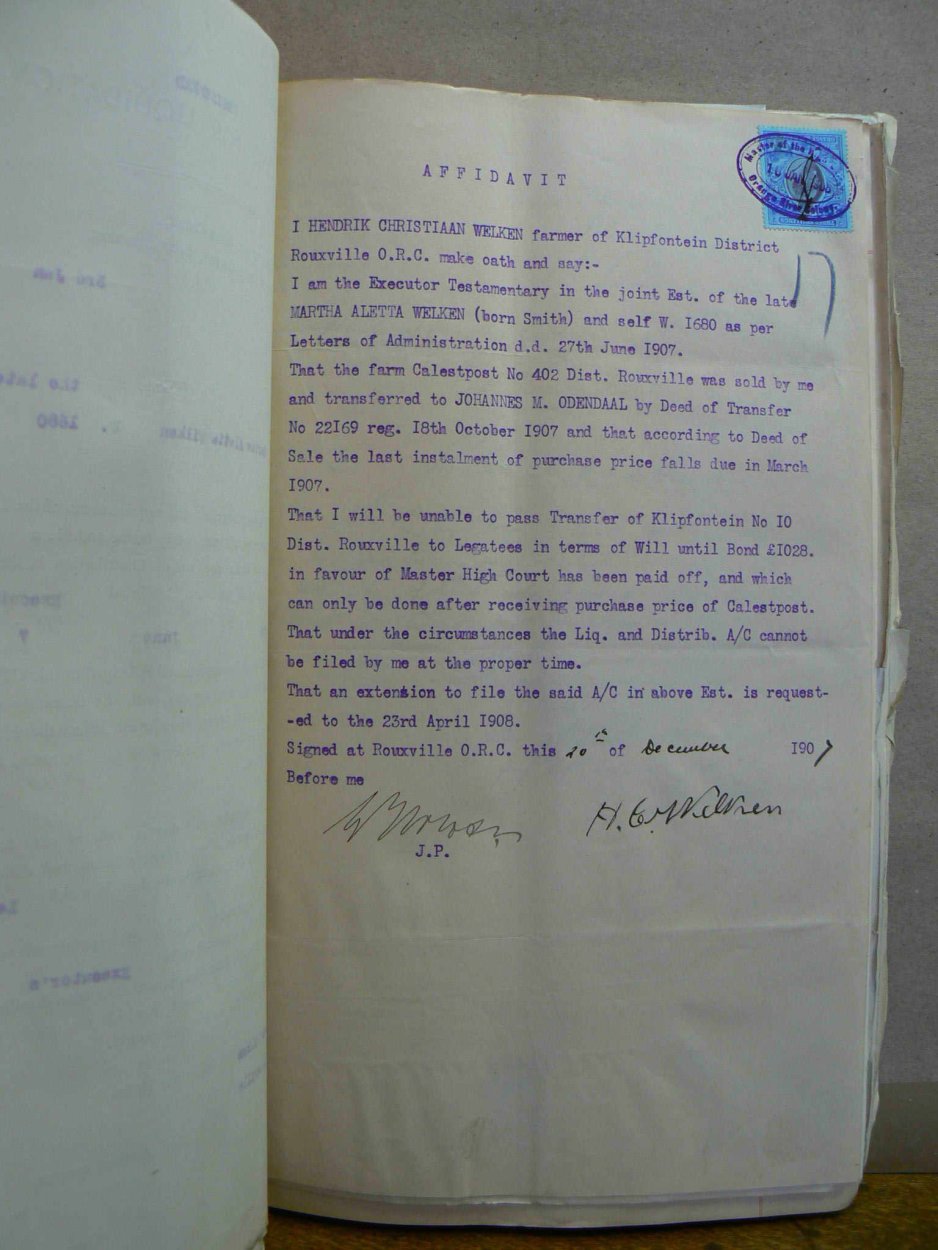 AFFIDAVIT
Master of the
Orange River Colony
17
I HENDRIK CHRISTIAAN WELKEN farmer of Klipfontein District
Rouxville O.R.C. make oath and say:-
I am the Executor Testamentary in the joint Est. of the late
MARTHA ALETTA WELKEN (born Smith) and self W. I680 as per
Letters of Administration d.d. 27th June I907.
That the farm Calestpost No 402 Dist. Rouxville was sold by me
and transferred to JOHANNES M. ODENDAAL by Deed of Transfer
No 22I69 reg. I8th October I907 and that according to Deed of
Sale the last instalment of purchase price falls due in March
I907.
That I will be unable to pass Transfer of Klipfontein No IO
Dist. Rouxville to Legatees in terms of Will until Bond £I028.
in favour of Master High Court has been paid off, and which
can only be done after receiving purchase price of Calestpost.
That under the circumstances the Liq. and Distrib. A/C cannot
be filed by me at the proper time.
That an extension to file the said A/C in above Est. is request-
-ed to the 23rd April I908.
Signed at Rouxville O.R.C. this 20th of December I907
Before me
H. C. Welken
J.P.